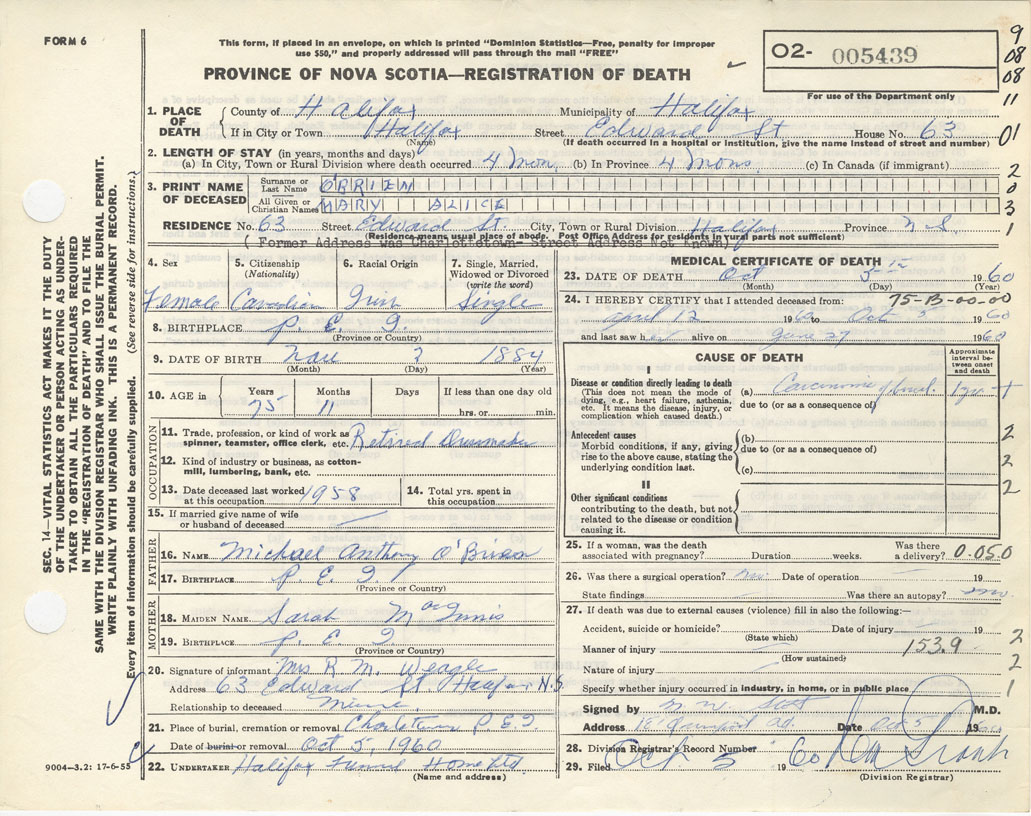 FORM 6
This form, if placed in an envelope, on which is printed "Dominion Statistics—Free, penalty for improper
use $50," and properly addressed will pass through the mail "FREE"
PROVINCE OF NOVA SCOTIA—REGISTRATION OF DEATH
02- 005439
For use of the Department only
9
08
08
11
01
2
0
3
1
SEC. 14—VITAL STATISTICS ACT MAKES IT THE DUTY
OF THE UNDERTAKER OR PERSON ACTING AS UNDER-
TAKER TO OBTAIN ALL THE PARTICULARS REQUIRED
IN THE "REGISTRATION OF DEATH" AND TO FILE THE
SAME WITH THE DIVISION REGISTRAR WHO SHALL ISSUE THE BURIAL PERMIT.
WRITE PLAINLY WITH UNFADING INK. THIS IS A PERMANENT RECORD.
Every item of information should be carefully supplied. (See reverse side for instructions.)
1. PLACE OF DEATH
County of Halifax Municipality of Halifax
If in City or Town Halifax Street Edward St House No. 63
(Name) (If death occurred in a hospital or institution, give the name instead of street and number)
2. LENGTH OF STAY (in years, months and days)
(a) In City, Town or Rural Division where death occurred. 4 Mon. (b) In Province 4 Mons. (c) In Canada (if immigrant)
3. PRINT NAME OF DECEASED
Surname or Last Name O'BRIEN
All Given or Christian Names MARY ALICE
RESIDENCE No. 63 Street Edward St. City, Town or Rural Division Halifax Province N.S.
(Residence means usual place of abode. Post Office Address for residents in rural parts not sufficient)
( Former Address was Charlottetown- Street Address not known)
4. Sex 5. Citizenship (Nationality) 6. Racial Origin 7. Single, Married, Widowed or Divorced (write the word)
Female Canadian Irish Single
8. BIRTHPLACE P.E.I.
(Province or Country)
9. DATE OF BIRTH Nov 2 1884
(Month) (Day) (Year)
10. AGE in Years 75 Months 11 Days If less than one day old hrs. or min.
OCCUPATION
11. Trade, profession, or kind of work as spinner, teamster, office clerk, etc. Retired Dressmaker
12. Kind of industry or business, as cotton-mill, lumbering, bank, etc.
13. Date deceased last worked at this occupation 1958
14. Total yrs. spent in this occupation
15. If married give name of wife or husband of deceased
FATHER
16. NAME Michael Anthony O'Brien
17. BIRTHPLACE P.E.I.
(Province or Country)
MOTHER
18. MAIDEN NAME Sarah MacInnis
19. BIRTHPLACE P.E.I.
(Province or Country)
20. Signature of informant Mrs R. M. Weagle
Address 63 Edward St. Halifax N.S
Relationship to deceased
21. Place of burial, cremation or removal P.E.I
Date of burial or removal Oct 5, 1960
22. UNDERTAKER Halifax Funeral Home Ltd
(Name and address)
9004—3.2: 17-6-55
MEDICAL CERTIFICATE OF DEATH
23. DATE OF DEATH Oct 1960
(Month) (Day) (Year)
24. I HEREBY CERTIFY that I attended deceased from: 75-B-00-00
April 12 1960 to Oct 5 1960
and last saw her alive on June 27 1960
CAUSE OF DEATH
Approximate interval between onset and death
I
Disease or condition directly leading to death
(This does not mean the mode of dying, e.g., heart failure, asthenia, etc. It means the disease, injury, or complication which caused death.)
(a) Carcinoma of bowel. 1 yr +
due to (or as a consequence of)
Antecedent causes
Morbid conditions, if any, giving rise to the above cause, stating the underlying condition last.
(b)
due to (or as a consequence of)
(c)
II
Other significant conditions
contributing to the death, but not related to the disease or condition causing it.
2
2
2
25. If a woman, was the death associated with pregnancy? Duration weeks. Was there a delivery? 0.050
26. Was there a surgical operation? Date of operation 19
State findings Was there an autopsy?
27. If death was due to external causes (violence) fill in also the following:—
Accident, suicide or homicide? Date of injury 19
(State which)
Manner of injury 153.9
(How sustained)
Nature of injury
Specify whether injury occurred in industry, in home, or in public place
2
2
1
Signed by M.D.
Address Date Oct 5 1960
28. Division Registrar's Record Number
29. Filed Oct 5 1960
(Division Registrar)